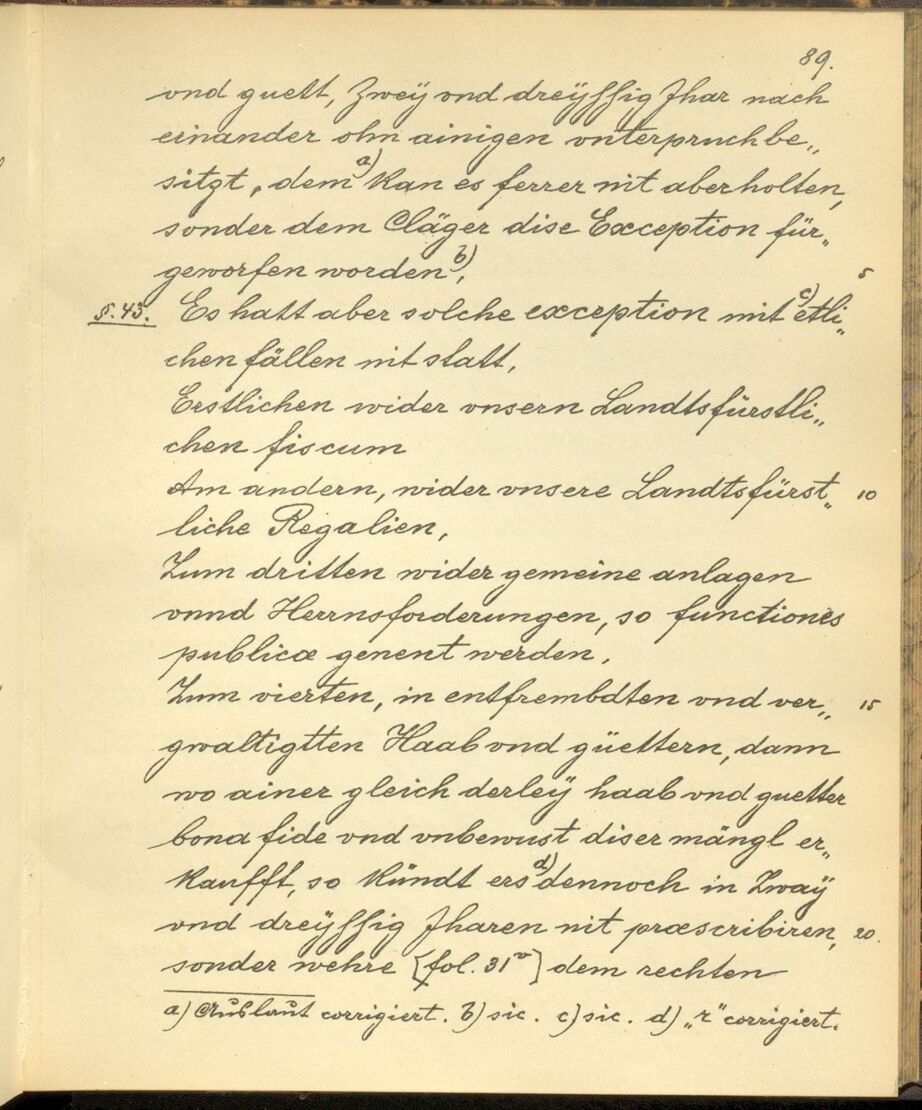 89.
vnd guett, Zweÿ vnd dreÿssig Jhar nach
einander ohn ainigen vnterpruch be„
sitzt, dem a) kan es ferrer nit aberholten,
sonder dem Cläger dise Exception für„
geworfen worden b),
5
§. 43. Es hatt aber solche exception mit c) etli„
chen fällen nit statt,
Erstlichen wider vnsern Landtsfürstli„
chen fiscum
Am andern, wider vnsere Landtsfürst„ 10
liche Regalien,
Zum dritten wider gemeine anlagen
vnnd Herrnsforderungen, so functiones
publicæ genent werden,
Zum vierten, in entfrembdten vnd ver„ 15
gwaltigtten Haab vnd güettern, dann
wo ainer gleich derleÿ haab vnd guetter
bona fide vnd vnbewust diser mängl er„
kaufft, so kündt ers d) dennoch in Zwaÿ
vnd dreÿssig Jharen nit præscribiren, 20.
sonder wehre [fol. 31v] dem rechten
a) Auslaut corrigiert. b) sic. c) sic. d) „r" corrigiert.